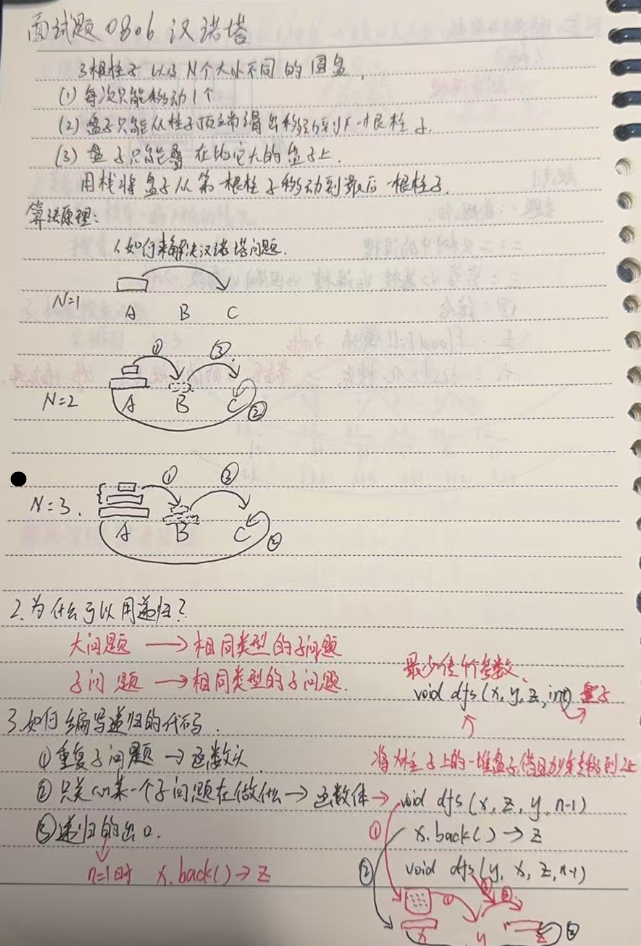 面试题 0806 汉诺塔
3根柱子 以及 N个大小不同的圆盘.
(1) 每次只能移动1个
(2) 盘子只能从柱子顶端滑出移动到下一根柱子.
(3) 盘子只能叠在比它大的盘子上.
用栈将盘子从第一根柱子移动到最后一根柱子.
算法原理:
1.如何来解决汉诺塔问题.
N=1
A B C
① ③
N=2 A B C ②
① ③
N=3. A B C ②
2.为什么可以用递归?
大问题 → 相同类型的子问题
子问题 → 相同类型的子问题.
最少传几个参数.
void dfs(x, y, z, int) 盘子
3.如何编写递归的代码.
① 重复子问题 → 函数头
将x柱子上的一堆盘子,借助y柱子移到z上
② 只关心某一个子问题在做什么 → 函数体 → void dfs(x, z, y, n-1)
③ 递归的出口. ① x.back() → z
n=1时 x.back() → z ② void dfs(y, x, z, n-1)
① ② ③
x y z